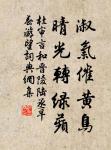 淑氣催黃鳥
晴光轉綠蘋
杜審言和晉陵陸丞早
春遊望詞典網集